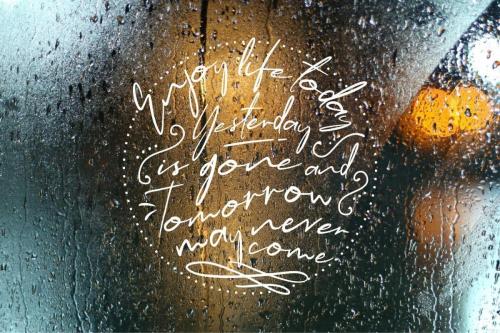 Enjoy life today
Yesterday
is gone and
Tomorrow
may never
come